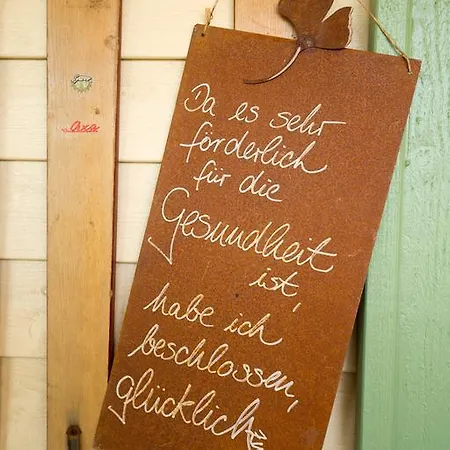 Da es sehr
förderlich
für die
Gesundheit
ist,
habe ich
beschlossen,
glücklich
zu